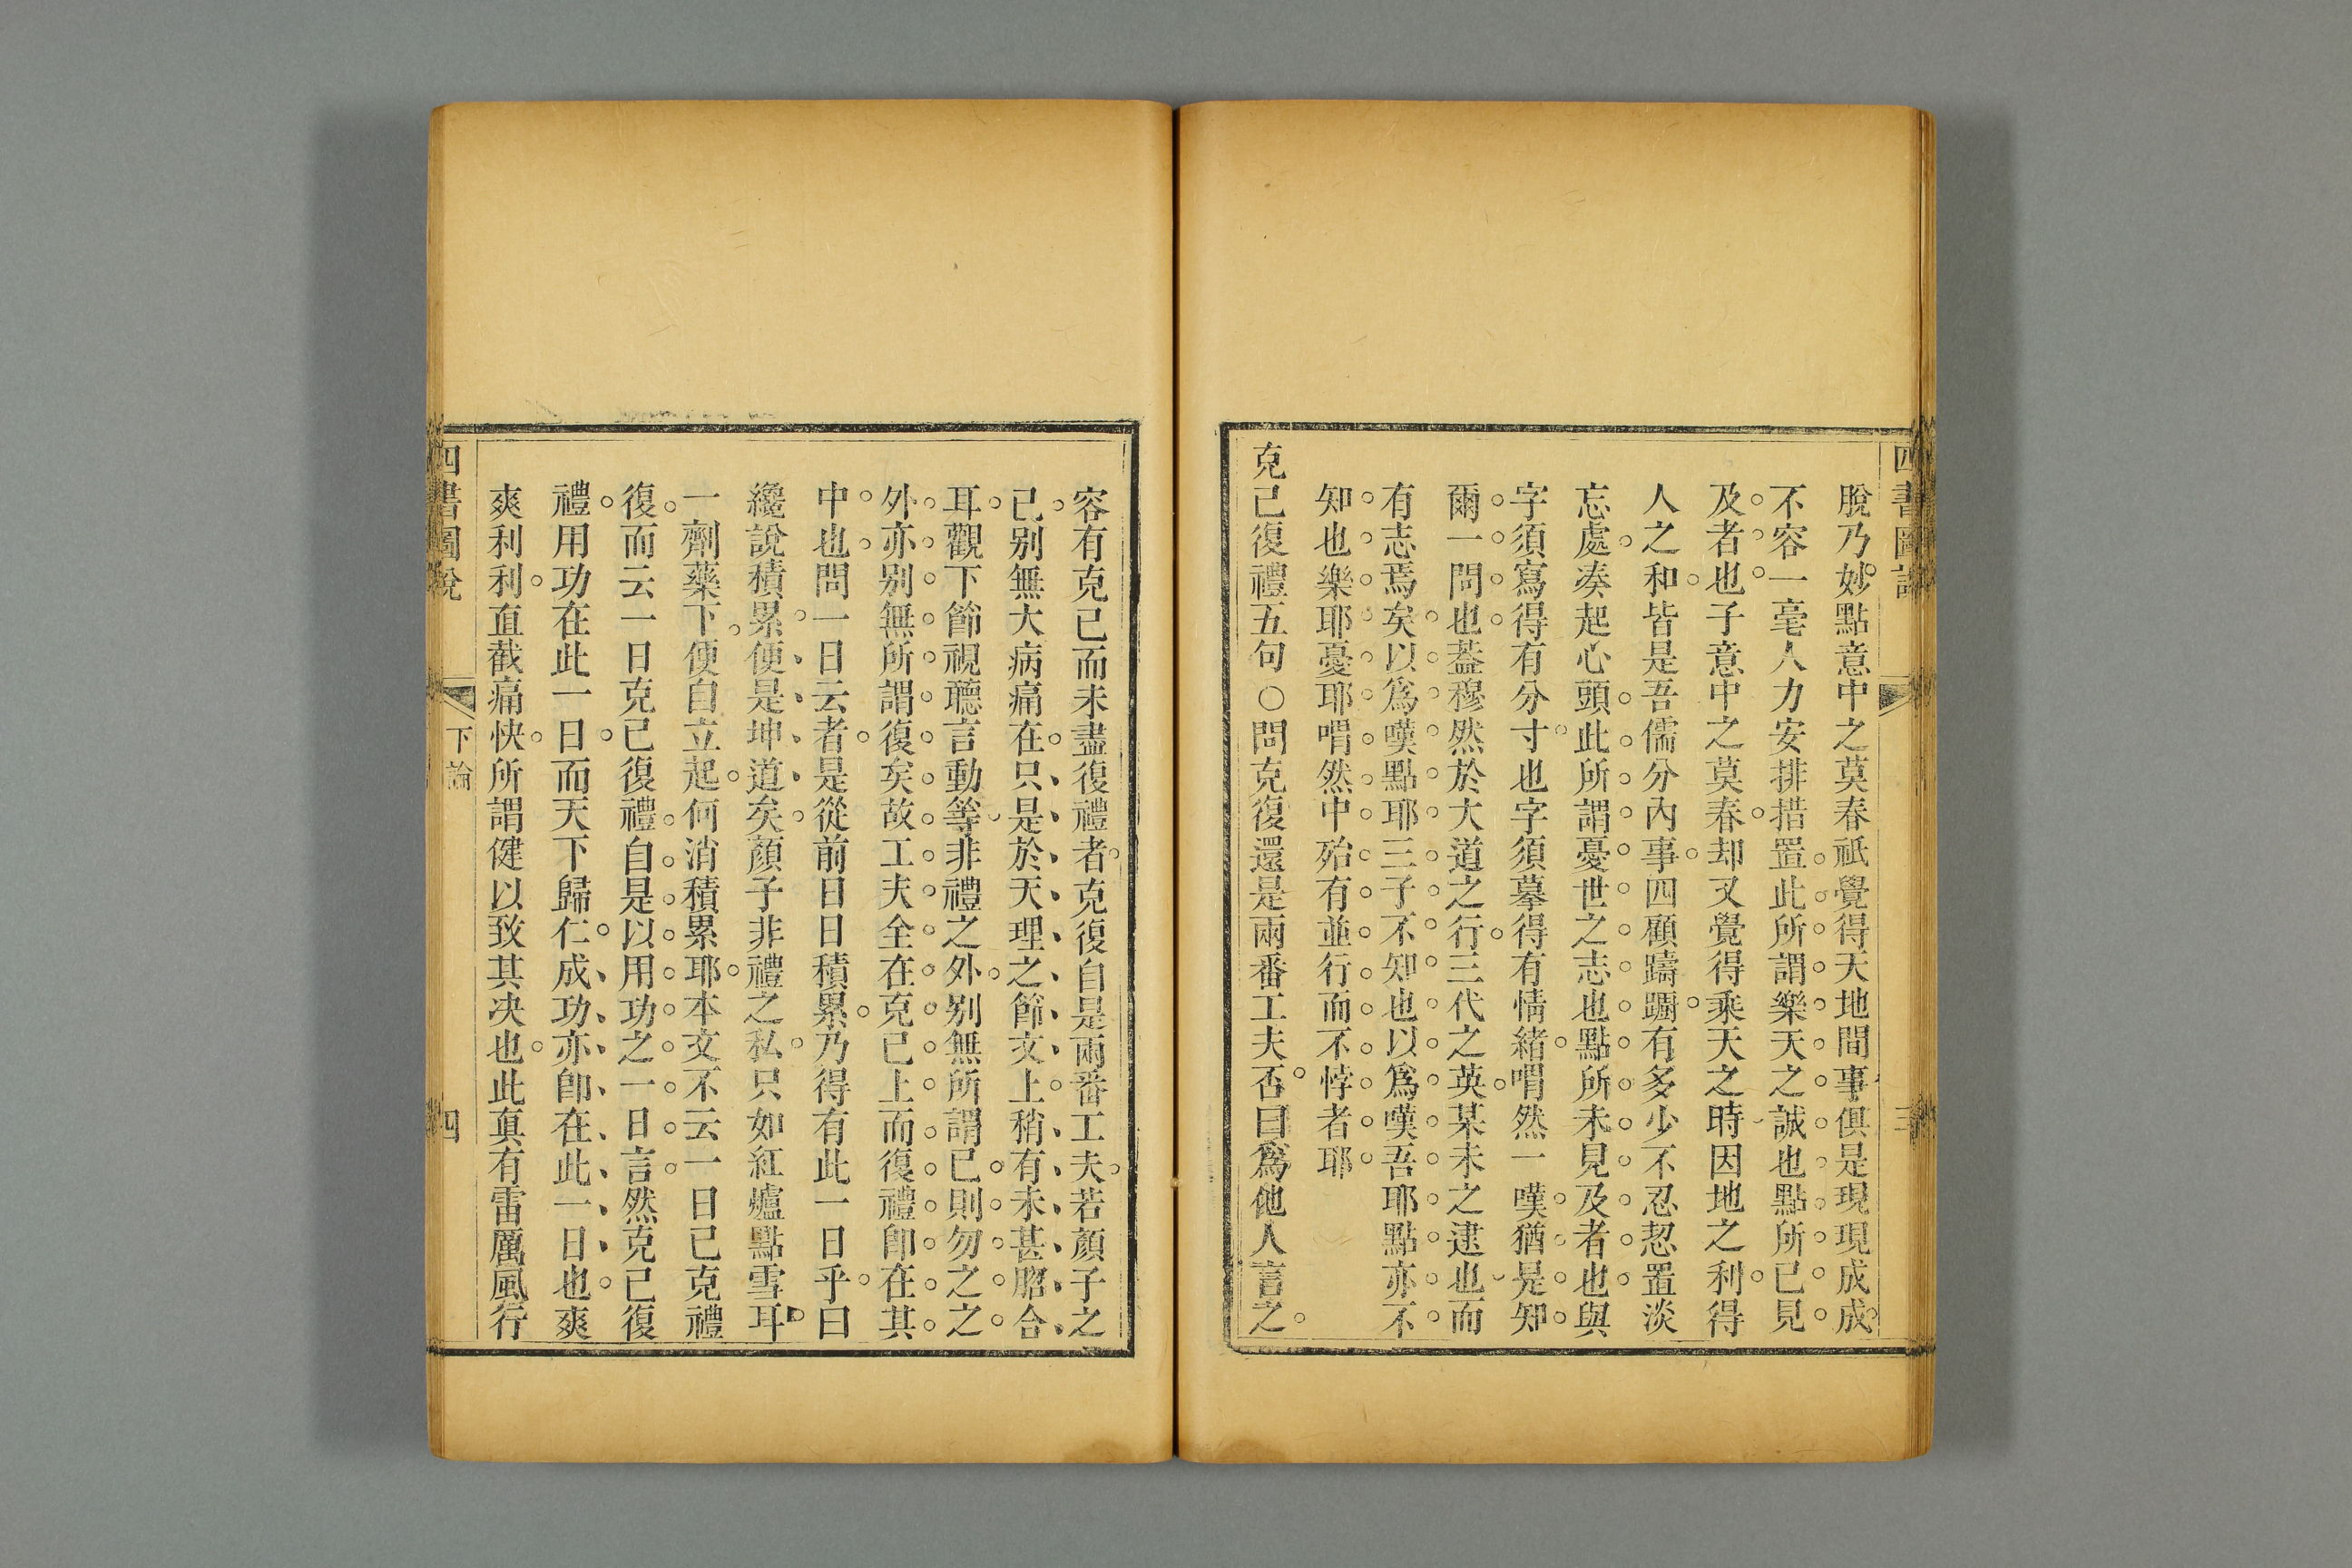 四書圖說
三
脫乃妙點意中之莫春祇覺得天地間事俱是現現成成
不容一毫人力安排措置此所謂樂天之誠也點所已見
及者也子意中之莫春却又覺得乘天之時因地之利得
人之和皆是吾儒分內事四顧躊躕有多少不忍恝置淡
忘處湊起心頭此所謂憂世之志也點所未見及者也與
字須寫得有分寸也字須摹得有情緒喟然一嘆猶是知
爾一問也葢穆然於大道之行三代之英某未之逮也而
有志焉矣以爲嘆點耶三子不知也以爲嘆吾耶點亦不
知也樂耶憂耶喟然中殆有並行而不悖者耶
克己復禮五句○問克復還是兩番工夫否曰爲他人言之
容有克己而未盡復禮者克復自是兩番工夫若顏子之
己别無大病痛在只是於天理之節文上稍有未甚脗合
耳觀下節視聽言動等非禮之外别無所謂己則勿之之
外亦别無所謂復矣故工夫全在克己上而復禮卽在其
中也問一日云者是從前日日積累乃得有此一日乎曰
纔說積累便是坤道矣顏子非禮之私只如紅爐點雪耳
一劑藥下便自立起何消積累耶本文不云一日已克禮
復而云一日克己復禮自是以用功之一日言然克己復
禮用功在此一日而天下歸仁成功亦卽在此一日也爽
爽利利直截痛快所謂健以致其决也此眞有雷厲風行
四書圖說
下論
四